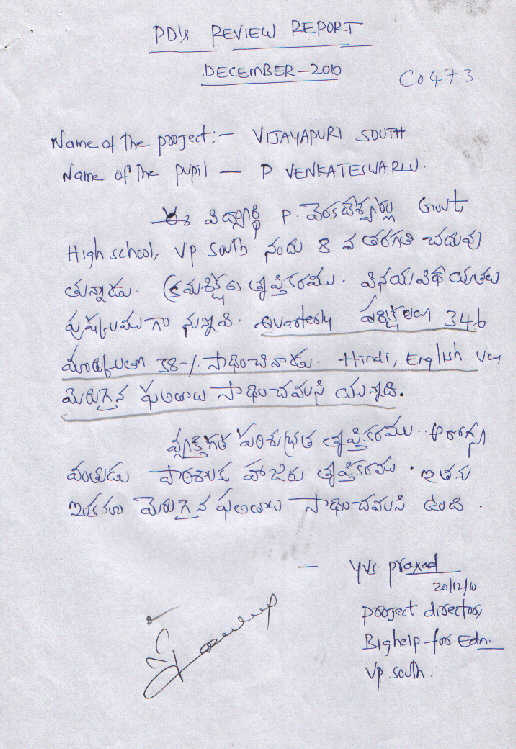 PD's REVIEW REPORT
DECEMBER-2010
C0473
Name of the project:- VIJAYAPURI SOUTH
Name of the pupil - P VENKATESWARLU.
ఈ విద్యార్థి P. వెంకటేశ్వర్లు Govt
High school, VP South నందు 8 వ తరగతి చదువు
తున్నాడు. క్రమశిక్షణ తృప్తికరము. వినయవిధేయతలు
పుష్కలముగా నున్నవి. Quarterly పరీక్షలలో 346
మార్కులతో 38-/. సాధించినాడు. Hindi, English లలో
మెరుగైన ఫలితాలు సాధించవలసి యున్నది.
వ్యక్తిగత పరిశుభ్రత తృప్తికరము. ఆరోగ్య
వంతుడు పాఠశాలకు హాజరు తృప్తికరము. ఇతను
ఇంకనూ మెరుగైన ఫలితాలు సాధించవలసి ఉంది.
- YVS prasad
20/12/10
project director,
Bighelp-for Edn.
VP. South.